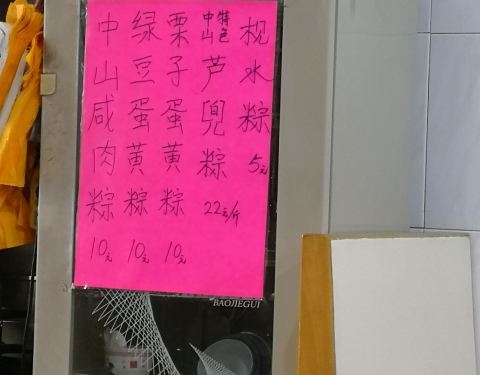 中山咸肉粽10元
绿豆蛋黄粽10元
栗子蛋黄粽10元
中山特色芦兜粽22元/斤
枧水粽5元
BAOJIEGUI